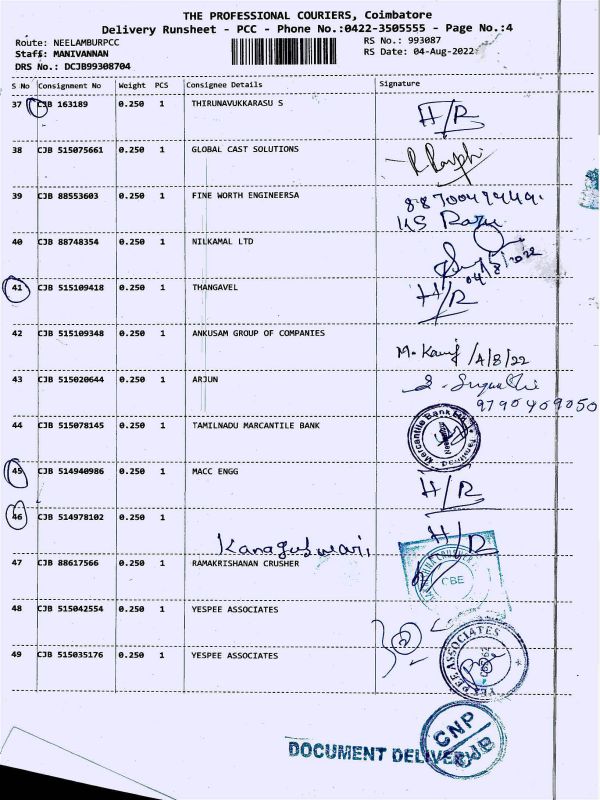 THE PROFESSIONAL COURIERS, Coimbatore
Delivery Runsheet - PCC - Phone No.:0422-3505555 - Page No.:4
Route: NEELAMBURPCC RS No.: 993087
Staff: MANIVANNAN RS Date: 04-Aug-2022
DRS No.: DCJB99308704
S No Consignment No Weight PCS Consignee Details Signature
37 CJB 163189 0.250 1 THIRUNAVUKKARASU S H/R
38 CJB 515075661 0.250 1 GLOBAL CAST SOLUTIONS
39 CJB 88553603 0.250 1 FINE WORTH ENGINEERSA
40 CJB 88748354 0.250 1 NILKAMAL LTD
04/8/2022
41 CJB 515109418 0.250 1 THANGAVEL H/R
42 CJB 515109348 0.250 1 ANKUSAM GROUP OF COMPANIES
43 CJB 515020644 0.250 1 ARJUN
9790409050
44 CJB 515078145 0.250 1 TAMILNADU MARCANTILE BANK
45 CJB 514940986 0.250 1 MACC ENGG H/R
46 CJB 514978102 0.250 1 H/R
Kanageshwari
47 CJB 88617566 0.250 1 RAMAKRISHANAN CRUSHER CBE
48 CJB 515042554 0.250 1 YESPEE ASSOCIATES
49 CJB 515035176 0.250 1 YESPEE ASSOCIATES YESPEE ASSOCIATES
CNP
CJB
DOCUMENT DELIVERY